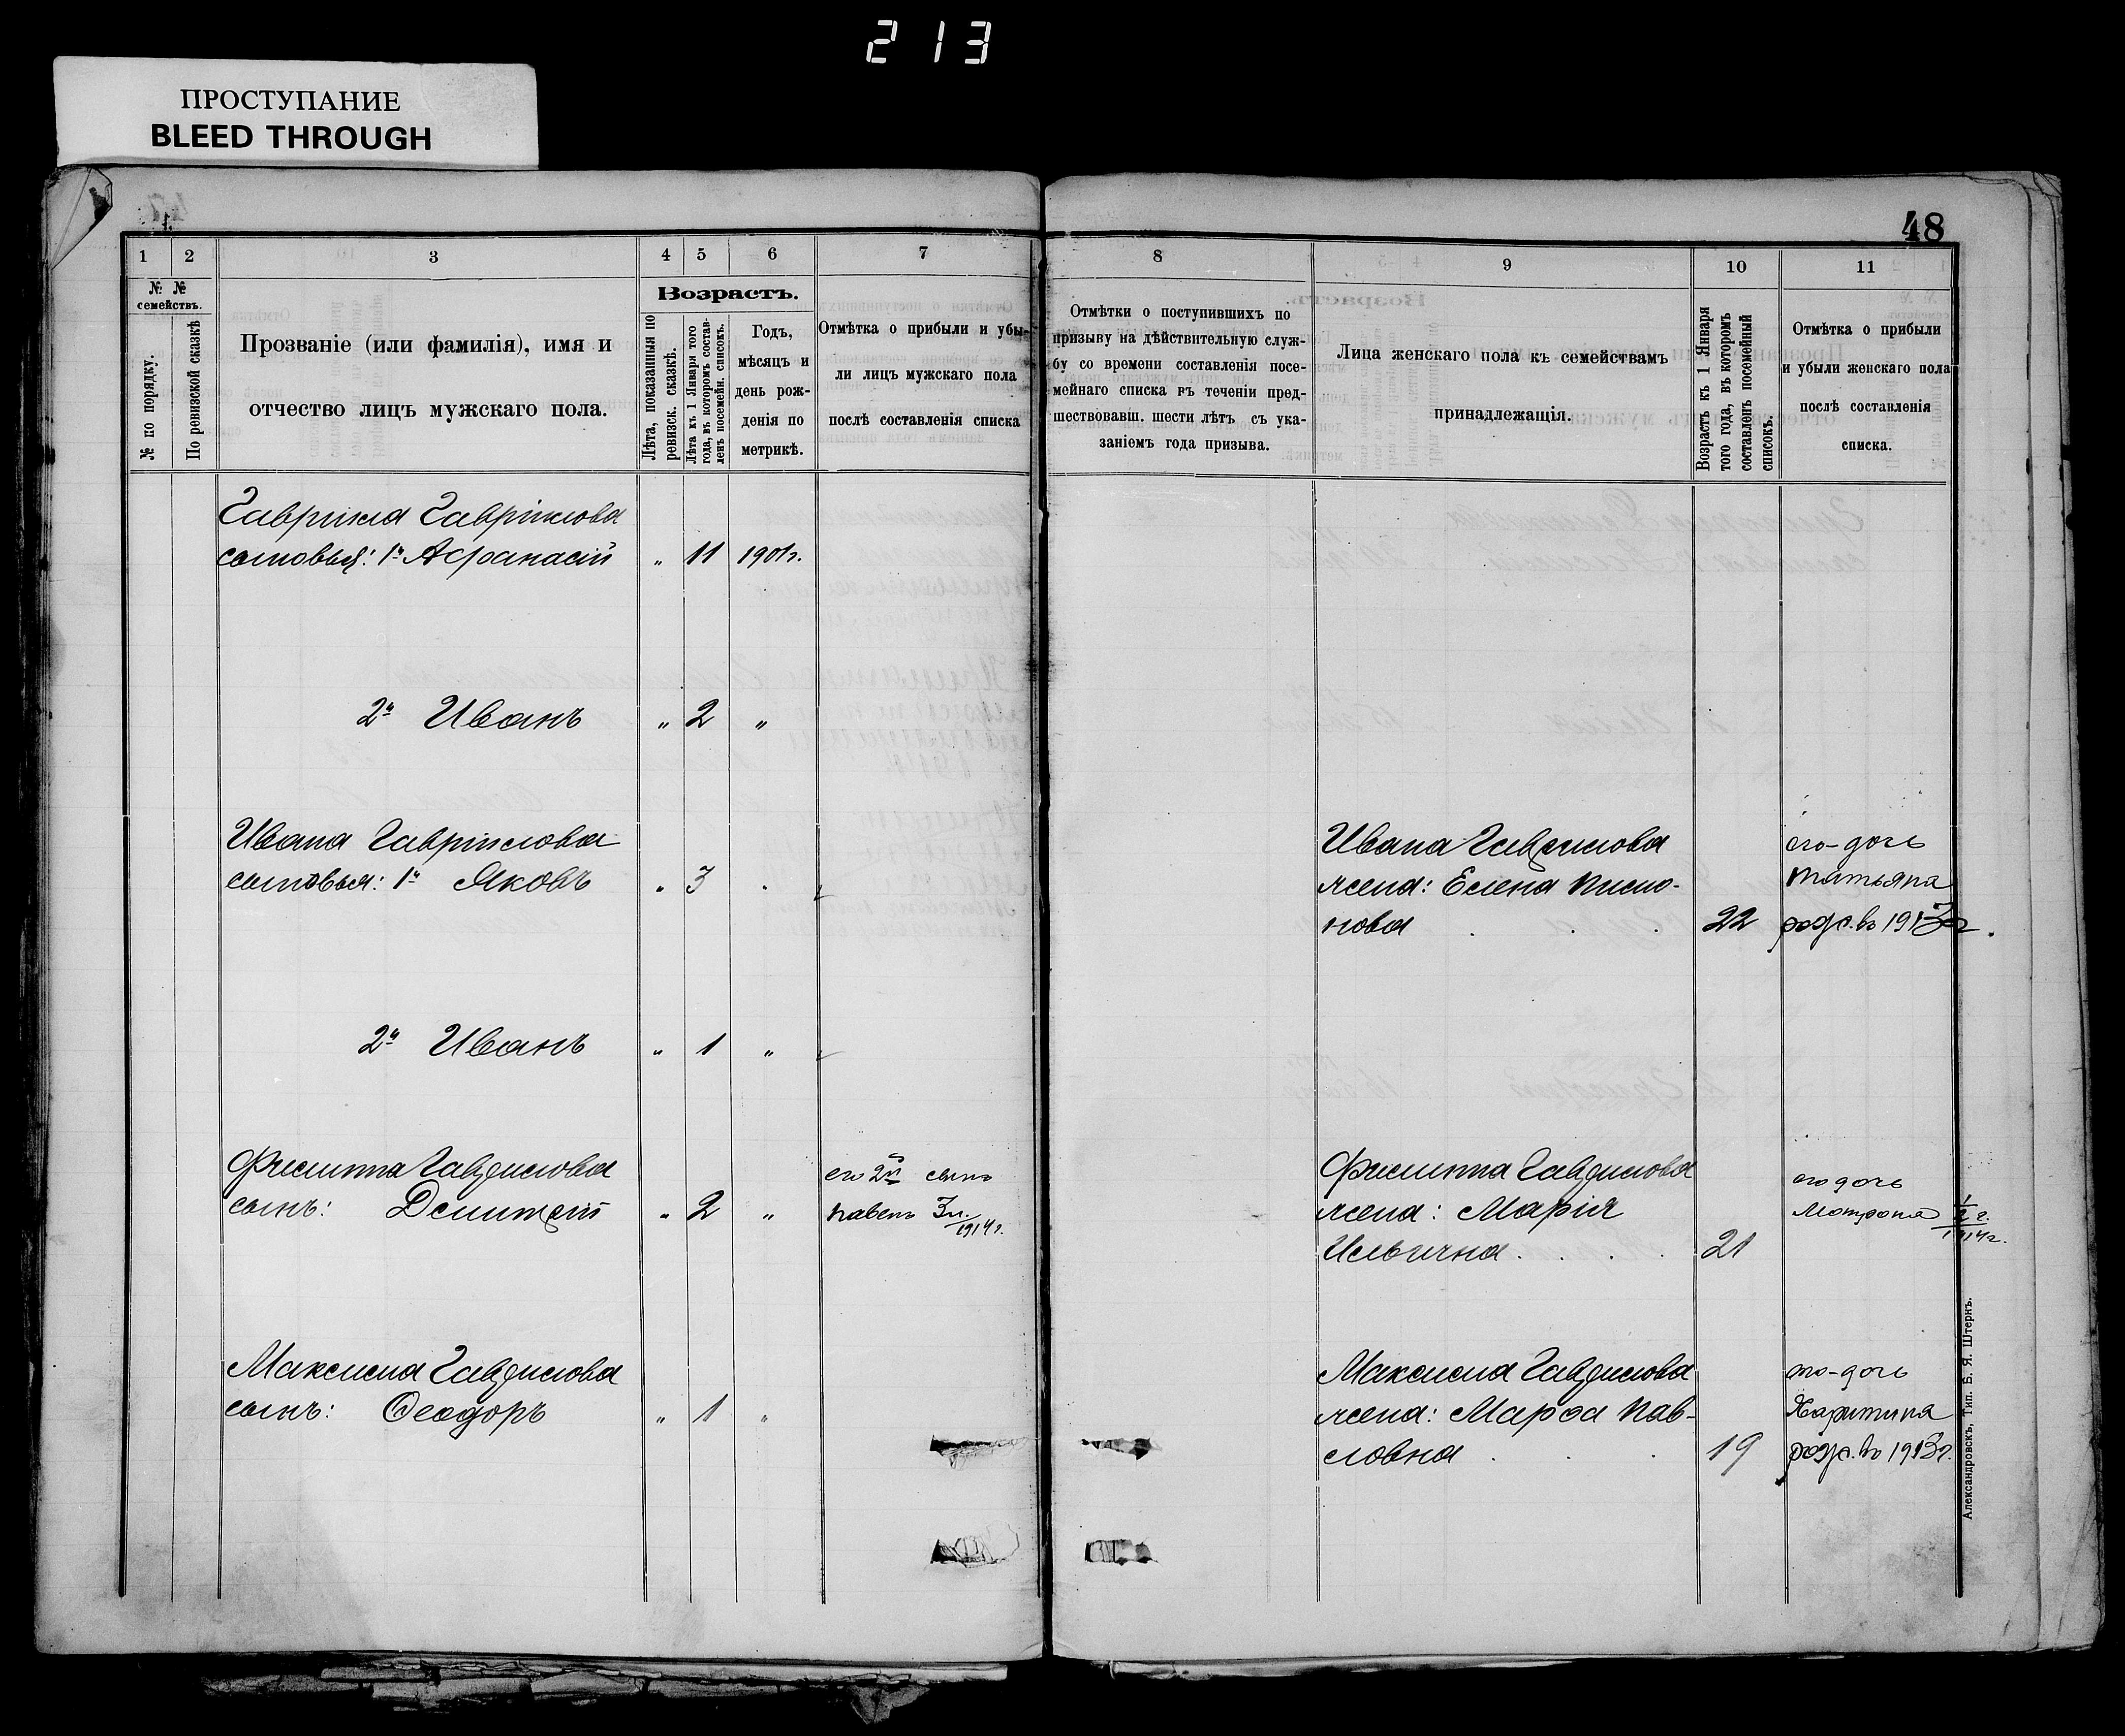 213
ПРОСТУПАНИЕ
BLEED THROUGH
48
1 2 3 4 5 6 7
8 9 10 11
№ №
семействъ.
№ по порядку.
По ревизской сказкѣ
Прозваніе (или фамилія), имя и
отчество лицъ мужскаго пола.
Возрастъ.
Лѣта, показанныя по
ревизск. сказкѣ.
Лѣта къ 1 Января того
года, въ которомъ состав-
ленъ посемейн. списокъ.
Годъ,
мѣсяцъ и
день рож-
денія по
метрикѣ.
Отмѣтка о прибыли и убы-
ли лицъ мужскаго пола
послѣ составленія списка
Отмѣтки о поступившихъ по
призыву на дѣйствительную служ-
бу со времени составленія посе-
мейнаго списка въ теченіи пред-
шествовавш. шести лѣтъ съ ука-
заніемъ года призыва.
Лица женскаго пола къ семействамъ
принадлежащія.
Возрастъ къ 1 Января
того года, въ которомъ
составленъ посемейный
списокъ.
Отмѣтка о прибыли
и убыли женскаго пола
послѣ составленія
списка.
Гавріила Гавріилова
сыновья: 1й Афанасій " 11 1901г.
2й Иванъ " 2 "
Ивана Гавріилова
сыновья: 1й Яковъ " 3 "
Ивана Гавриилова
жена: Елена
нова 22
его-дочь
Татьяна
родс. въ 1913г.
2й Иванъ " 1 "
Филиппа Гавриилова
сынъ: Димитрій " 2 "
его 2й сынъ
Павелъ
1914г.
Филиппа Гавриилова
жена: Марія
Ильична 21
его дочь
Мотрона
1914г.
Максима Гавриилова
сынъ: Ѳеодоръ " 1 "
Максима Гавриилова
жена: Марѳа Пав-
ловна 19
его-дочь
Харитина
родс. въ 1913г.
Александровскъ, Тип. Б. Я. Штернъ.